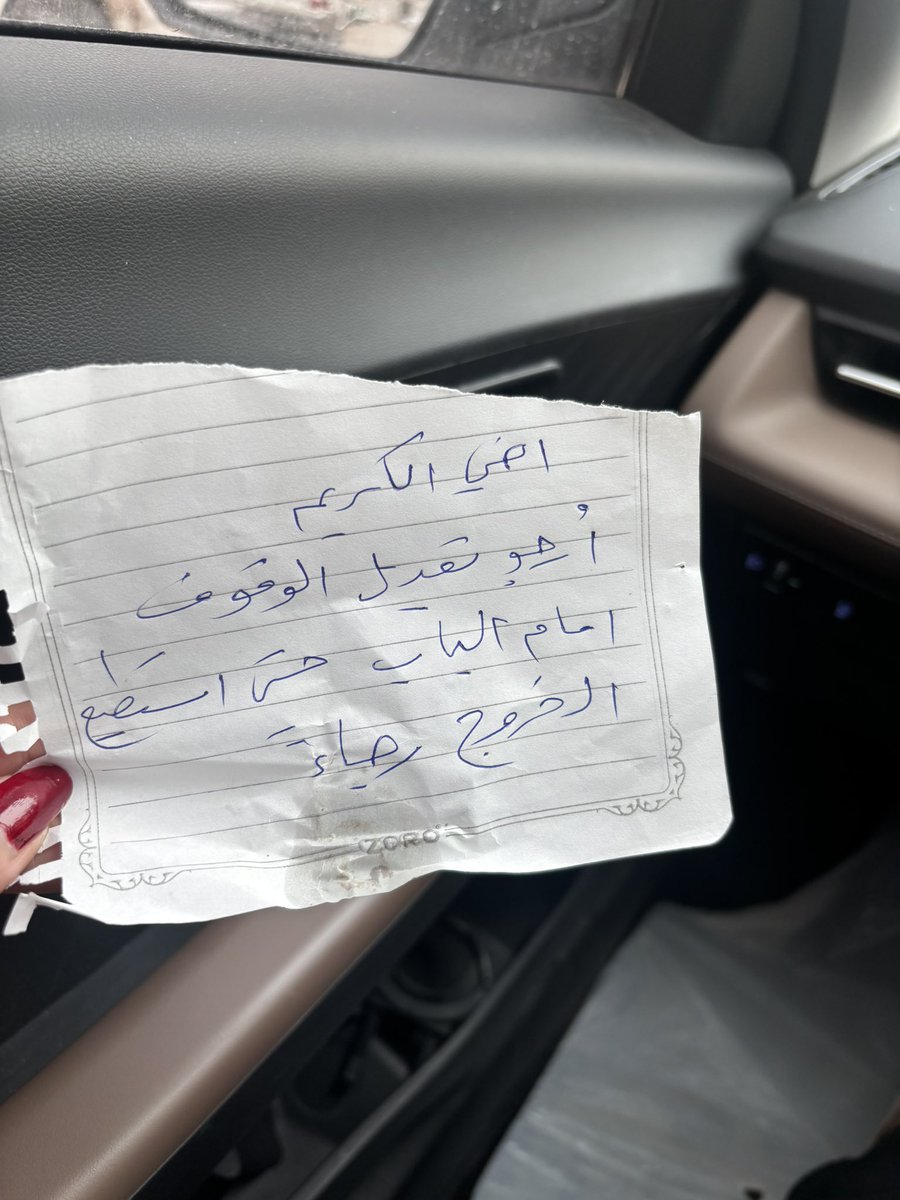 اخي الكريم
أرجو تعديل الوقوف
امام الباب حتى استطيع
الخروج رجاءً
ZORO